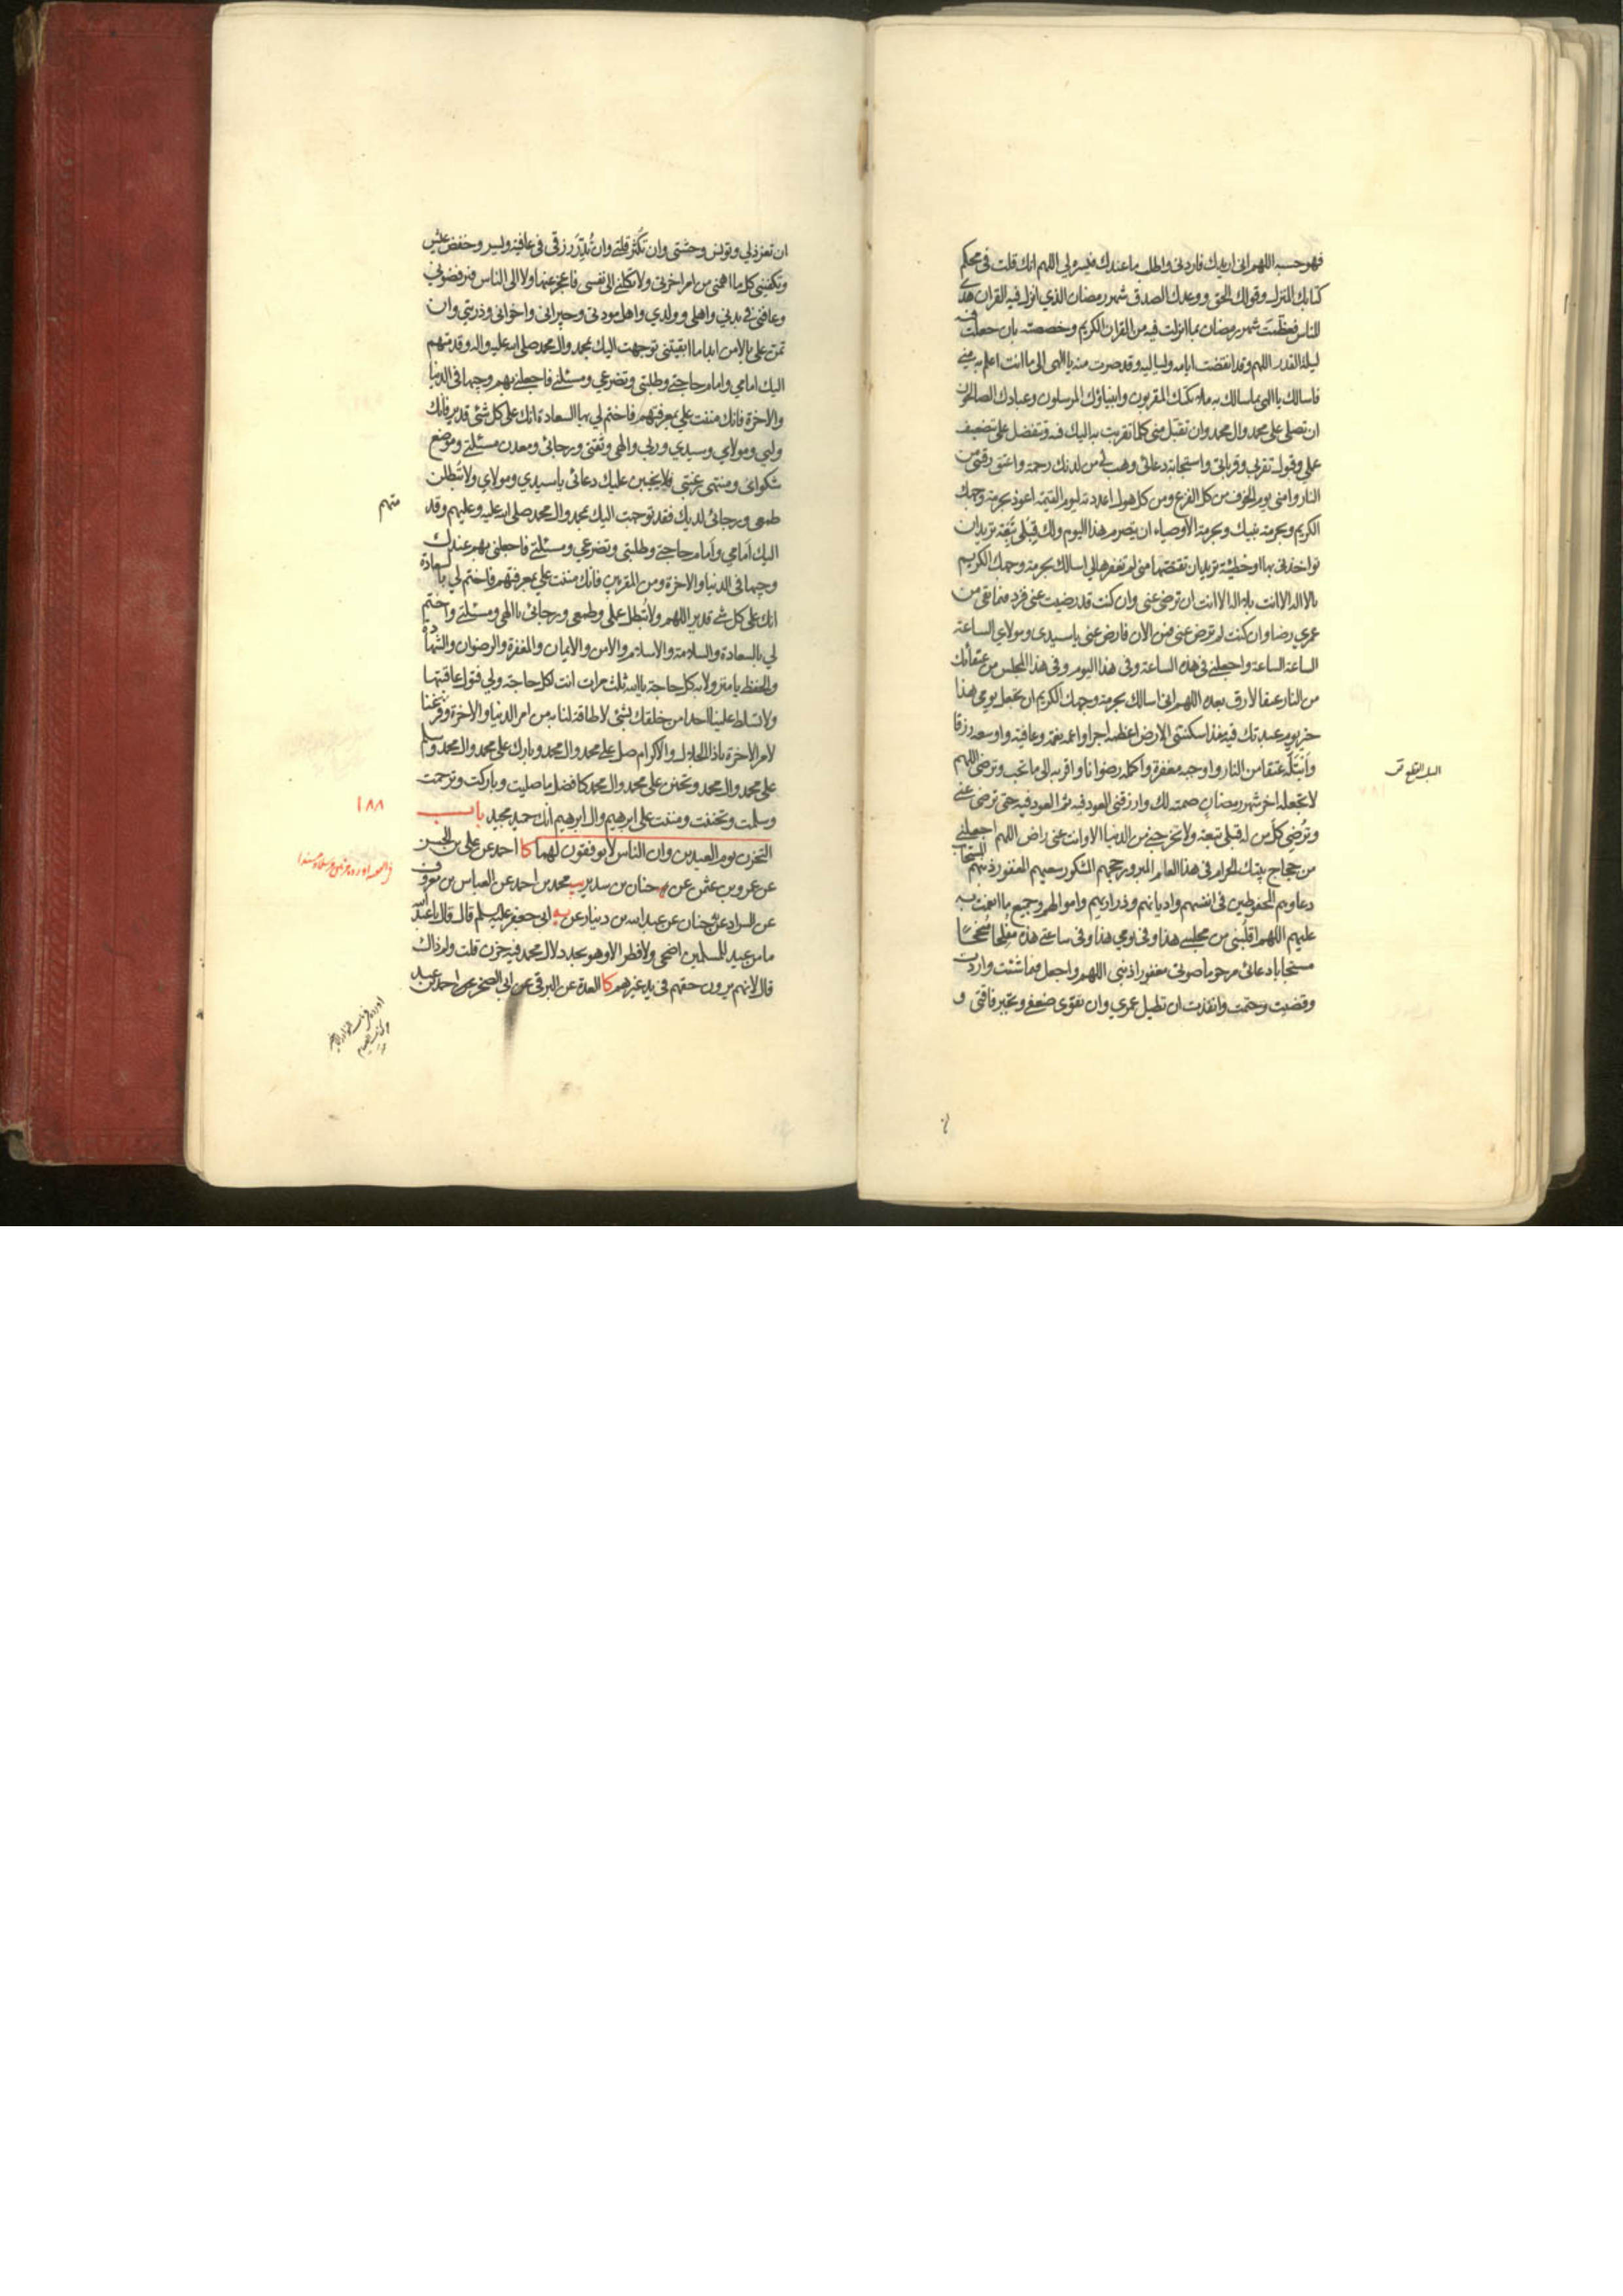 فهو حسبه اللهم اني اريدك فاردني واطلب ما عندك فيسره لي اللهم انك قلت في محكم
كتابك المنزل وقولك الحق ووعدك الصدق شهر رمضان الذي انزل فيه القران هدى
للناس فعظمت شهر رمضان بما انزلت فيه من القران الكريم وخصصته بان جعلت فيه
ليلة القدر اللهم وقد انقضت ايامه ولياليه وقد صرت منه يا الهي الى ما انت اعلم به مني
فاسالك يا الهي بما سالك به ملائكتك المقربون وانبياؤك المرسلون وعبادك الصالحون
ان تصلي على محمد وال محمد وان تقبل مني كلما تقربت به اليك فيه وتتفضل علي بتضعيف
عملي وقبول تقربي وقرباتي واستجابة دعائي وهب لي من لدنك رحمة واعتق رقبتي من
النار وامني يوم الخوف من كل الفزع ومن كل هول اعددته ليوم القيمة اعوذ بحرمة وجهك
الكريم وبحرمة نبيك وبحرمة الاوصياء ان يتصرم هذا اليوم ولك قبلي تبعة تريد ان
تؤاخذني بها او خطيئة تريد ان تقتصها مني لم تغفرها لي اسالك بحرمة وجهك الكريم
يا لا اله الا انت بلا اله الا انت ان ترضى عني وان كنت قد رضيت عني فزد فيما بقي من
عمري رضا وان كنت لم ترض عني فمن الان فارض عني يا سيدي ومولاي الساعة
الساعة الساعة واجعلني في هذه الساعة وفي هذا اليوم وفي هذا المجلس من عتقائك
من النار عتقا لا رق بعده اللهم اني اسالك بحرمة وجهك الكريم ان تجعل يومي هذا
خير يوم عبدتك فيه منذ اسكنتني الارض اعظمه اجرا واعمه نعمة وعافية واوسعه رزقا
وابتله عتقا من النار واوجبه مغفرة واكمله رضوانا واقربه الى ما تحب وترضى اللهم
لا تجعله اخر شهر رمضان صمته لك وارزقني العود فيه ثم العود فيه حتى ترضى عني
وترضي كل من له قبلي تبعة ولا تخرجني من الدنيا الا وانت عني راض اللهم اجعلني
من حجاج بيتك الحرام في هذا العام المبرور حجهم المشكور سعيهم المغفور ذنبهم المستجاب
دعاوهم المحفوظين في انفسهم واديانهم وذراريهم واموالهم وجميع ما انعمت به
عليهم اللهم اقلبني من مجلسي هذا وفي يومي هذا وفي ساعتي هذه مفلحا منجحا
مستجابا دعائي مرحوما صوتي مغفورا ذنبي اللهم واجعل فيما شئت واردت
وقضيت وحتمت وانفذت ان تطيل عمري وان تقوي ضعفي وتجبر فاقتي و
ان تعز ذلي وتونس وحشتي وان تكثر قلتي وان تدر رزقي في عافية ويسر وخفض عيش
وتكفيني كل ما اهمني من امر اخرتي ولا تكلني الى نفسي فاعجز عنها ولا الى الناس فيرفضوني
وعافني في بدني واهلي وولدي واهل مودتي وجيراني واخواني وذريتي وان
تمن علي بالامن ابدا ما ابقيتني توجهت اليك بمحمد وال محمد صلى الله عليه واله وقدمتهم
اليك امامي وامام حاجتي وطلبتي وتضرعي ومسئلتي فاجعلني بهم وجيها في الدنيا
والاخرة فانك مننت علي بمعرفتهم فاختم لي بها السعادة انك على كل شئ قدير فانك
وليي ومولاي وسيدي وربي والهي وثقتي ورجائي ومعدن مسئلتي وموضع
شكواي ومنتهى رغبتي فلا يخيبن عليك دعائي يا سيدي ومولاي ولا تبطلن
طمعي ورجائي لديك فقد توجهت اليك بمحمد وال محمد صلى الله عليه وعليهم وقد
متهم
اليك امامي وامام حاجتي وطلبتي وتضرعي ومسئلتي فاجعلني بهم عندك
وجيها في الدنيا والاخرة ومن المقربين فانك مننت علي بمعرفتهم فاختم لي بالسعادة
انك على كل شئ قدير اللهم ولا تبطل عملي وطمعي ورجائي يا الهي ومسئلتي واختم
لي بالسعادة والسلامة والاسلام والامن والايمان والمغفرة والرضوان والشهادة
والحفظ يا منزولا به كل حاجة يا الله ثلث مرات انت لكل حاجة ولي فتول عاقبتها
ولا تسلط علينا احدا من خلقك بشئ لا طاقة لنا به من امر الدنيا والاخرة وفرغنا
لامر الاخرة يا ذا الجلال والاكرام صل على محمد وال محمد وبارك على محمد وال محمد وسلم
على محمد وال محمد وتحنن على محمد وال محمد كافضل ما صليت وباركت وترحمت
وسلمت وتحننت ومننت على ابرهيم وال ابرهيم انك حميد مجيد باب
١٨٨
التحزن يوم العيدين وان الناس لا يوفقون لهما كا احمد عن علي بن الحسن
عن عمرو بن عثمن عن حنان بن سدير يب محمد بن احمد عن العباس بن معروف
عن السراد عن حنان عن عبد الله بن دينار عن يه ابي جعفر عليه السلم قال قال يا عبد الله
ما من عيد للمسلمين اضحى ولا فطر الا وهو يجدد لال محمد فيه حزن قلت ولم ذاك
قال لانهم يرون حقهم في يد غيرهم كا العدة عن البرقي عن ابي الصخر عن احمد بن عبد